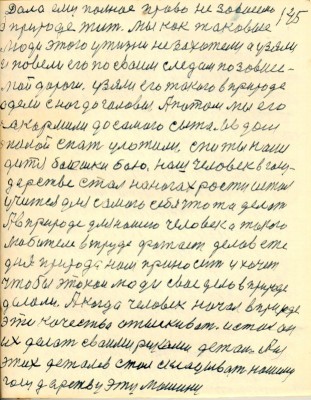 Дало ему полное право не зависимо 125
в природе жит. Мы как таковые
люди этого у жизни не захотели а узяли
и повели его по своим следам по зависи-
мой дороги. узяли его такого в природе
одели с ног до головы. А потом мы его
накормили до самого сыта. и в дом
такой спат уложили, спи ты наш
дитя баюшки баю. наш человек в госу-
дарстве стал на ногах рости и стал
учится для самого себя это то делат
А в природе для нашего человека такого
любителя в труде хватает делов еже
дня природа нам приносит и хочет
чтобы этакои люди свое дело в природе
делали. А когда человек начал в природе
эти качество отыскиват. и стал он
их делат своими руками детал. А из
этих деталев стал складыват нашему
государству эту машину